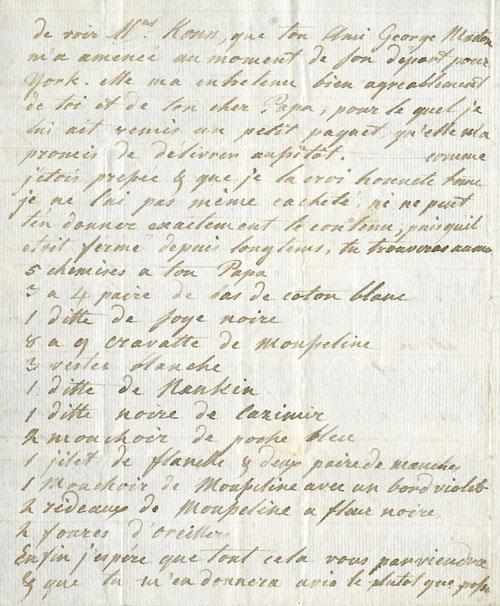 de voir Mrs. Koun, que ton Ami George Maston
m'a amenée au moment de son départ pour
York. elle m'a entretenu bien agreablement
de toi et de ton cher Papa, pour le quel je
lui ait remis un petit paquet qu'elle m'a
promis de délivrer aussitot. comme
j'etois &
que je la croi honnete
je ne l'ai pas même cacheté; je ne peut
t'en donner exactement le contenu, puis qu'il
etoit fermé depuis longtems, tu trouveras
5 chemises a ton Papa
3 a 4 paire de bas de coton blanc
1 ditte de soye noire
8 a 9 cravatte de mousseline
3 vestes blanche
1 ditte de Nankin
1 ditte noire de Cazimir
2 mouchoir de poche bleu
1 jilet de flanelle & deux paire de manches
1 Mouchoir de Mousseline avec un bord violet
2 rideaux de Mousseline a fleur noire
2 foures d'oreillers
Enfin j'espére que tout cela vous parviendra
& que tu m'en donnera avis le plutot que poss